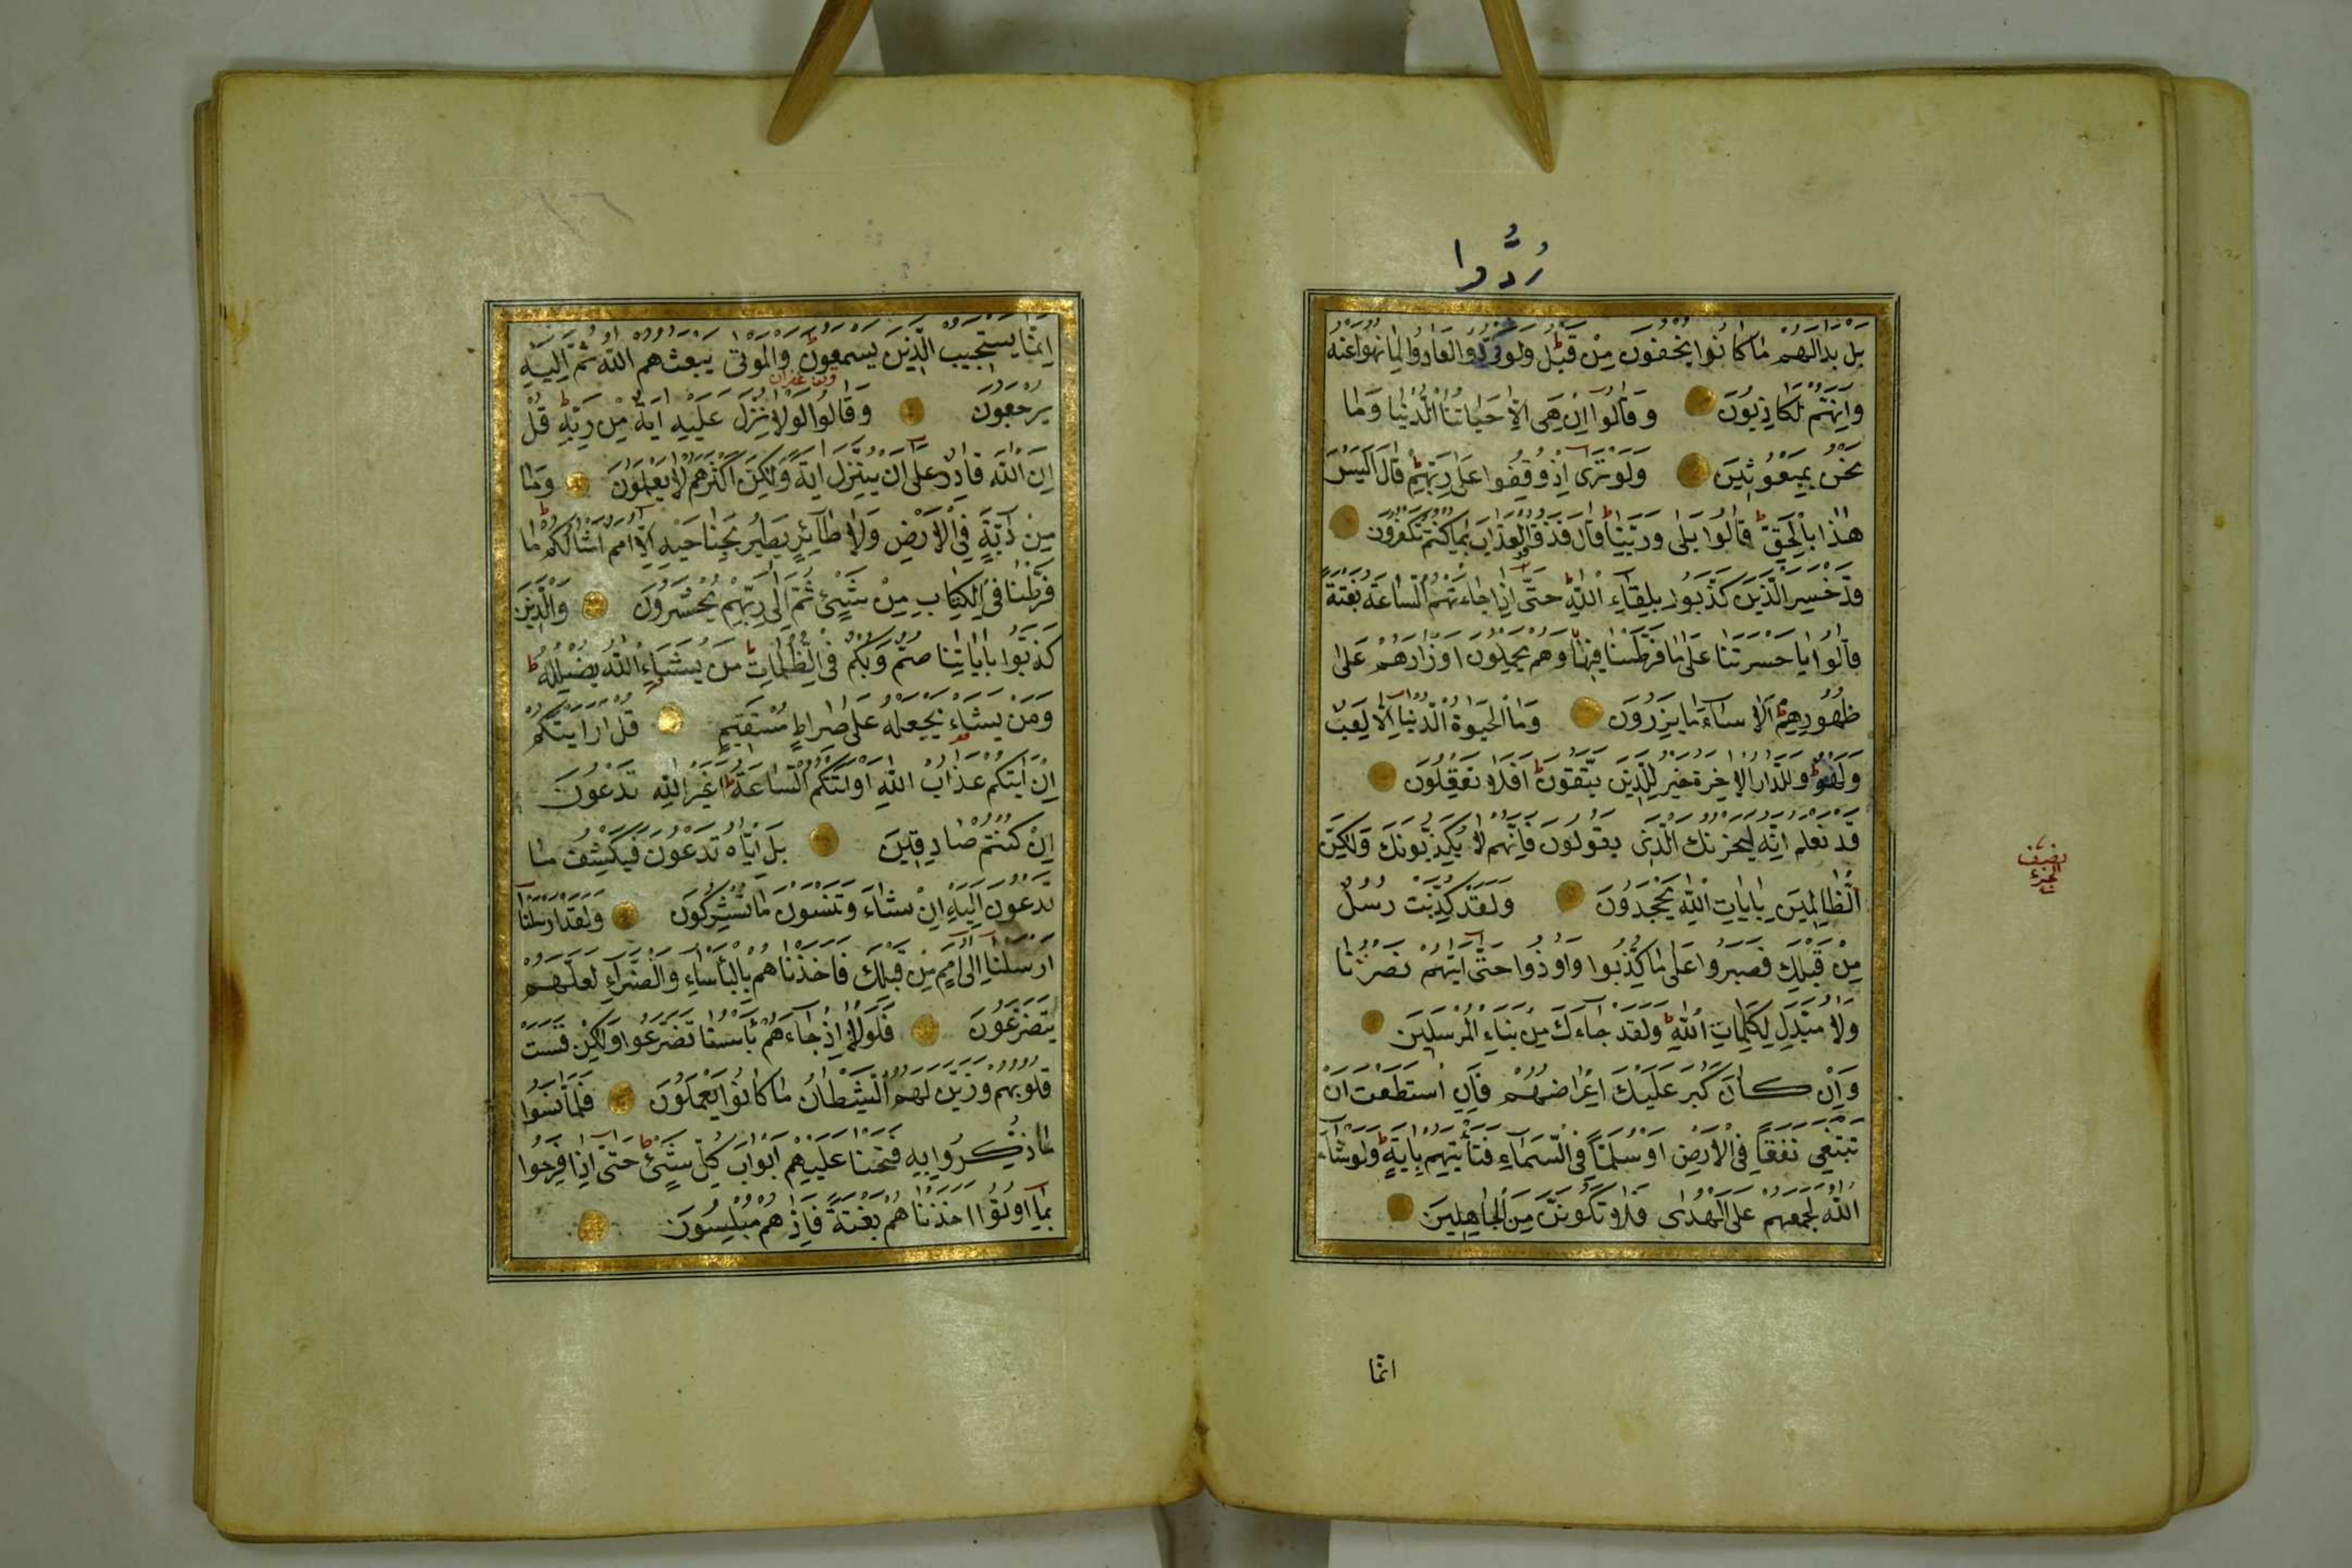 رُدُّوا
بل بدالهم ماكانوا يخفون مِنْ قَبْل ولوردّوا لعادوا لمانهوا عنه
وَاِنهُّم لكاذِبُونَ وَقالُوا اِنْ هِىَ الاّ حَيَاتنا الدُّنْيَا وَمَا
نحْن بِمَبْعُوثِينَ وَلَوْترى اِذ وُقِفُوا عَلى رَبّهِمْ قَالَ اَلَيْسَ
هٰذَا بِالْحَقِّ قَالُوا بَلى وَرَبّنَا قال فَذوقوا العذاب بماكنتم تكفرون
قدخسر الّذين كذّبوا بلقاءِ اللهِ حتّى اذاجاءتهم السّاعة بغتة
قالُوا ياحسرتنا على مافرّطنا فيها وهم يحملون اوزارهم على
ظهُورِهِمْ اَلا ساءَ ما يَزِرُونَ وَمَا الحَيوة الدّنيا اِلاّ لَعِبٌ
وَلهْوٌ وللدّار الاٰخِرة خير للّذِينَ يتّقون افلا تعقلُونَ
قدْ نعلم اِنّه ليحزنك الّذى يقولون فاِنّهم لا يُكذّبونك وَلٰكِنّ
الظّالِمينَ باٰيات اللهِ يَجْحدُونَ ولقدْ كذّبت رسل
مِنْ قَبْلِكَ فصبروا على ماكُذّبوا وَاُوذوا حتّى اتٰيهُمْ نصرنا
ولا مبدّل لكلمات اللهِ ولقد جاءَك مِنْ نبَاءِ المرْسَلينَ
وَاِنْ كانَ كَبُرَ عَلَيْكَ اِعْراضهُمْ فاِنِ اسْتطَعْت اَنْ
تبتغى نفقًا فى الارضِ اوْ سُلّمًا فى السّمَاءِ فتأتيهم بِايةٍ ولوشاءَ
اللهُ لجمعهم على الهدٰى فلا تكوننّ مِنَ الجَاهِلِينَ
نصف
الجزء
انما
اِنّما يستجيب الّذينَ يسمعون والموتى يبعثهم الله ثمّ اِليهِ
يرجعون وَقالُوا لولا نزّل عَلَيْهِ ايَة مِنْ ربّهِ قُلْ
اِنَّ اللهَ قادِرٌ على ان يُنزّل ايَة وَلٰكِنّ اكثرهم لا يعلمُون وما
مِنْ دابَّةٍ فِى الارْضِ وَلا طائِرٍ يطيرُ بجناحيهِ اِلاّ امم امثالكم ما
فرّطنا فى الكتابِ مِنْ شَيْئٍ ثمّ اِلى رَبّهِمْ يُحْشرونَ والّذين
كذبوا باياتِنا صمّ وَبكم فى الظّلماتِ منْ يَشاءِ اللهُ يضلله
ومَنْ يشاء يجعله على صراطٍ مُسْتقيمٍ قل ارايتكم
اِنْ اتيكم عذابُ اللهِ اواتتكم السّاعة اغيرَ اللهِ تدعُونَ
اِنْ كنتم صادِقينَ بل ايّاه تدعون فيكشف ما
تدعون اِليْهِ اِنْ شاءَ وتنسون ماتشركون ولقدارسلنا
ارسلنا اِلى اممٍ مِنْ قبلك فاخذناهم بِالبأساءِ والضّراءِ لعلّهم
يتضرّعُون فلولا اِذجاءَهم بأسنا تضرّعوا ولكِن قست
قلوبهم وزيّن لهم الشيْطان ماكانوا يعملون فلمّا نسوا
ماذكّروا بِهِ فتحنا عليهِمْ ابوابَ كلّ شيئٍ حتّى اذا فرِحوا
بما اوتوا اخذناهم بغتة فاِذ هم مبلِسُونَ